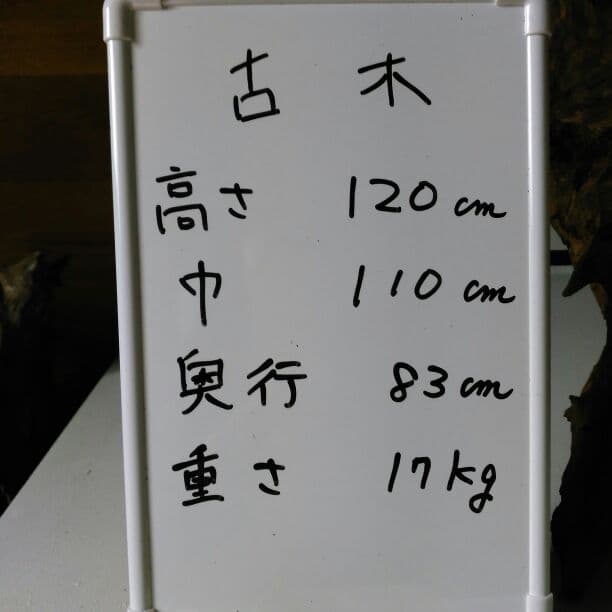 古木
高さ 120cm
巾 110cm
奥行 83cm
重さ 17kg